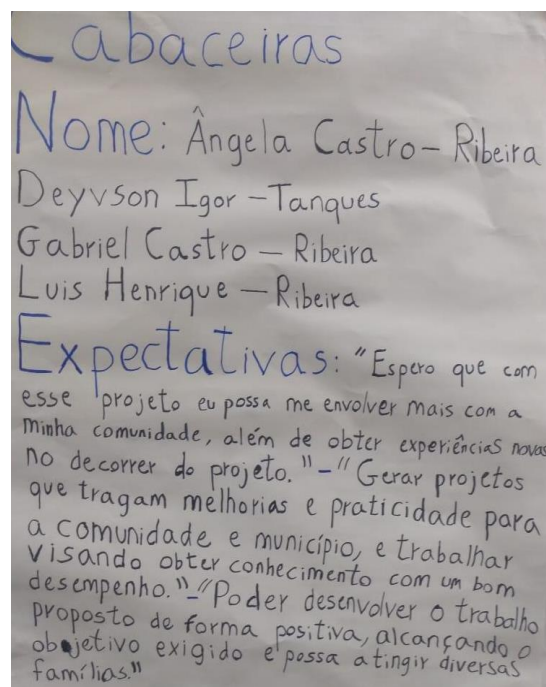 Cabaceiras
Nome: Ângela Castro - Ribeira
Deyvson Igor - Tanques
Gabriel Castro - Ribeira
Luis Henrique - Ribeira
Expectativas: "Espero que com
esse projeto eu possa me envolver mais com a
minha comunidade, além de obter experiências novas
no decorrer do projeto." - "Gerar projetos
que tragam melhorias e praticidade para
a comunidade e município, e trabalhar
visando obter conhecimento com um bom
desempenho." - "Poder desenvolver o trabalho
proposto de forma positiva, alcançando o
objetivo exigido e possa atingir diversas
famílias."